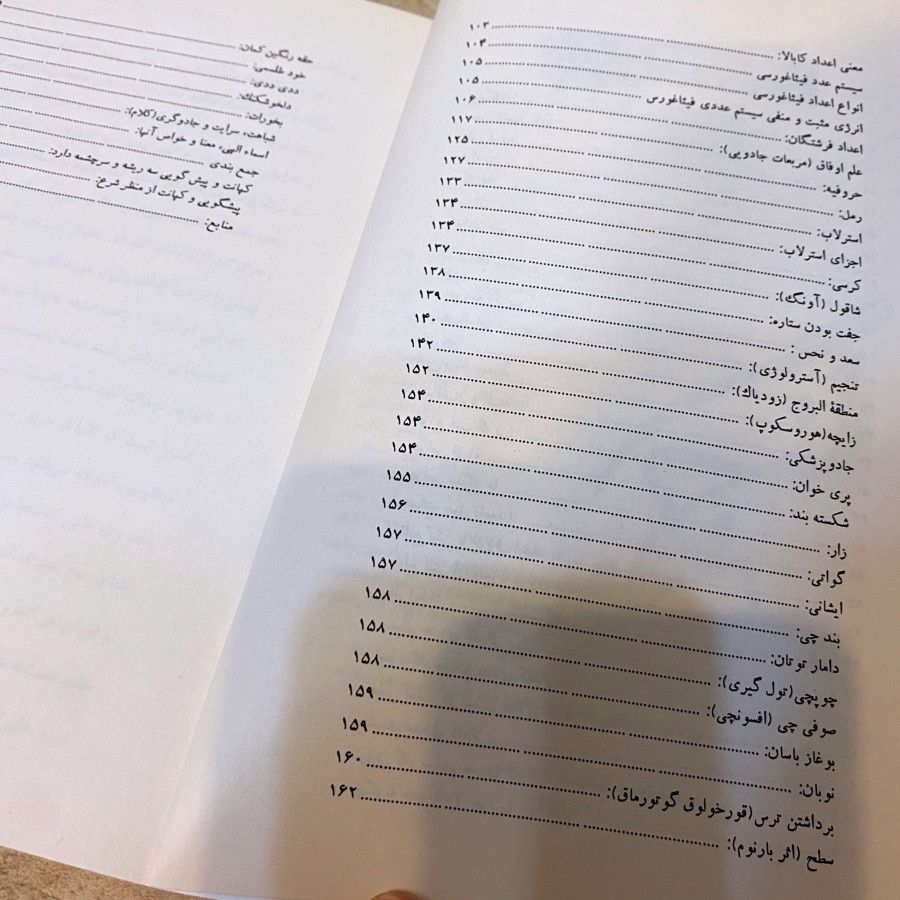 معنی اعداد کابالا: ۱۰۳
سیستم عدد فیثاغورسی ۱۰۴
انواع اعداد فیثاغورسی ۱۰۵
انرژی مثبت و منفی سیستم عددی فیثاغورس ۱۰۵
اعداد فرشتگان: ۱۰۶
علم اوفاق (مربعات جادویی): ۱۱۷
حروفیه: ۱۲۵
رمل: ۱۲۷
استرلاب: ۱۳۳
اجزای استرلاب: ۱۳۴
کرسی: ۱۳۴
شاقول (آونگ): ۱۳۷
جفت بودن ستاره: ۱۳۸
سعد و نحس : ۱۳۹
تنجیم (آسترولوژی): ۱۴۰
منطقة البروج (زودیاک): ۱۴۲
زایچه(هوروسکوپ): ۱۵۲
جادوپزشکی: ۱۵۴
پری خوان: ۱۵۴
شکسته بند: ۱۵۴
زار: ۱۵۵
گواتی: ۱۵۶
ایشانی: ۱۵۷
بند چی: ۱۵۷
دامار توتان: ۱۵۸
چوپچی(تول گیری): ۱۵۸
صوفی چی (افسونچی): ۱۵۸
بوغاز باسان: ۱۵۹
نوبان: ۱۵۹
برداشتن ترس(قورخولوق گوتورماق): ۱۶۰
سطح (اثر بارنوم): ۱۶۲
حقه رنگین کمان:
خود طلسمی:
ددی ددی:
دلخوشکنک:
بخورات:
شباهت، سرایت و جادوگری(کلام):
اسماء الهی، معنا و خواص آنها:
جمع بندی
کهانت و پیش گویی سه ریشه و سرچشمه دارد:
پیشگویی و کهانت از منظر شرع:
منابع: